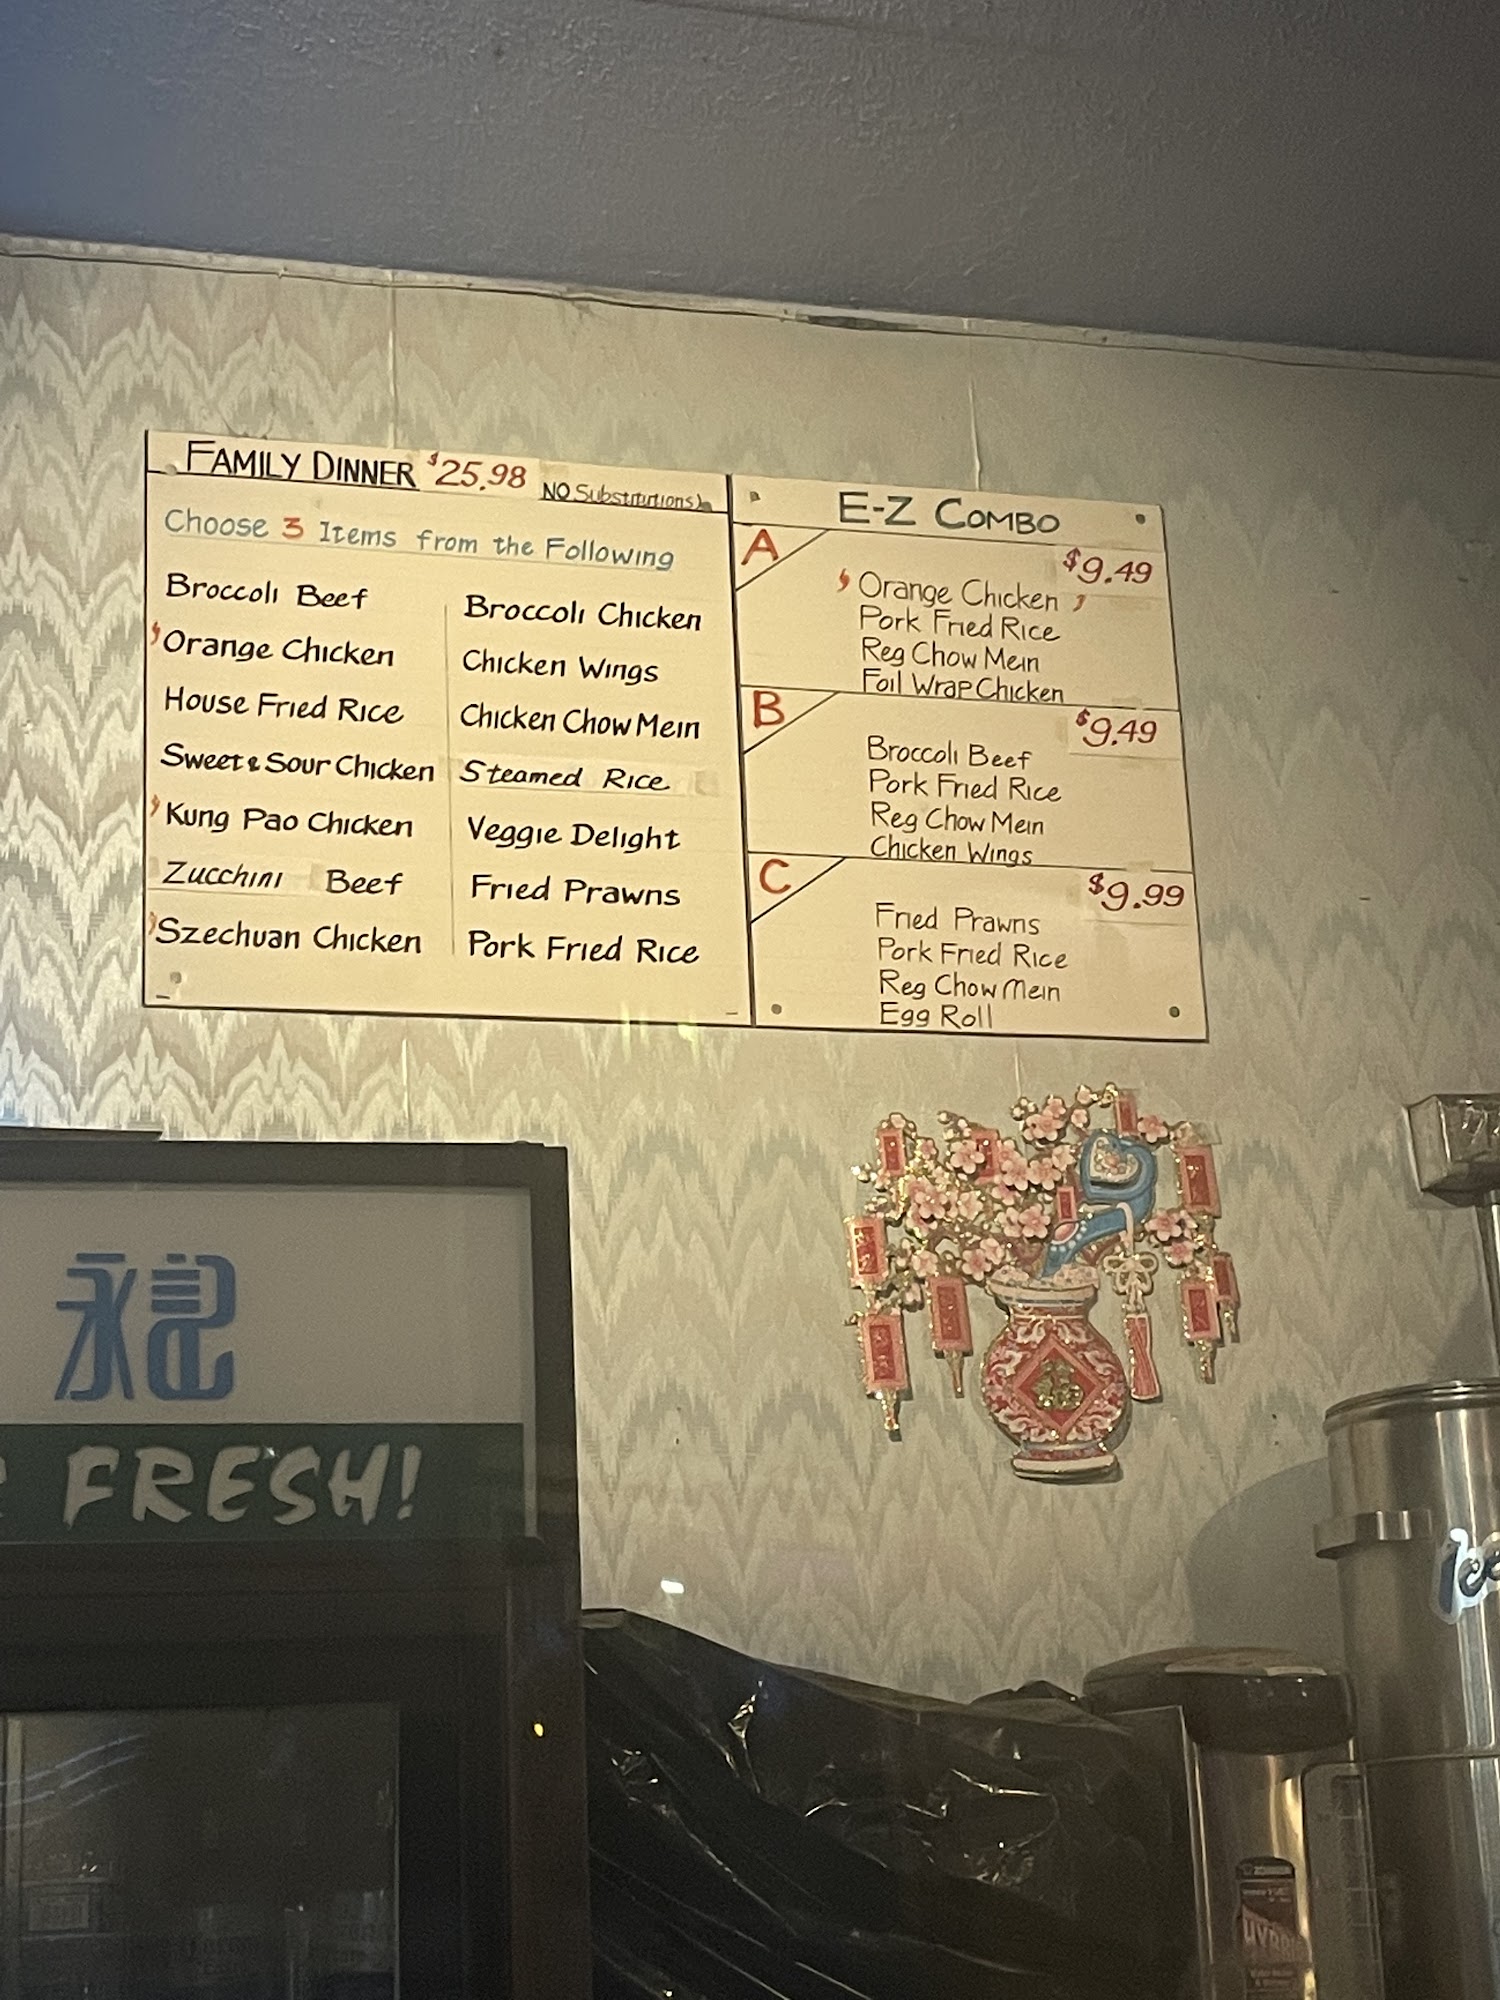 FAMILY DINNER $25.98 NO Substitutions
Choose 3 Items from the Following
Broccoli Beef
Orange Chicken
House Fried Rice
Sweet & Sour Chicken
Kung Pao Chicken
Zucchini Beef
Szechuan Chicken
Broccoli Chicken
Chicken Wings
Chicken Chow Mein
Steamed Rice
Veggie Delight
Fried Prawns
Pork Fried Rice
E-Z COMBO
A
$9.49
Orange Chicken
Pork Fried Rice
Reg Chow Mein
Foil Wrap Chicken
B
$9.49
Broccoli Beef
Pork Fried Rice
Reg Chow Mein
Chicken Wings
C
$9.99
Fried Prawns
Pork Fried Rice
Reg Chow Mein
Egg Roll
永記
FRESH!
福
HYBRID